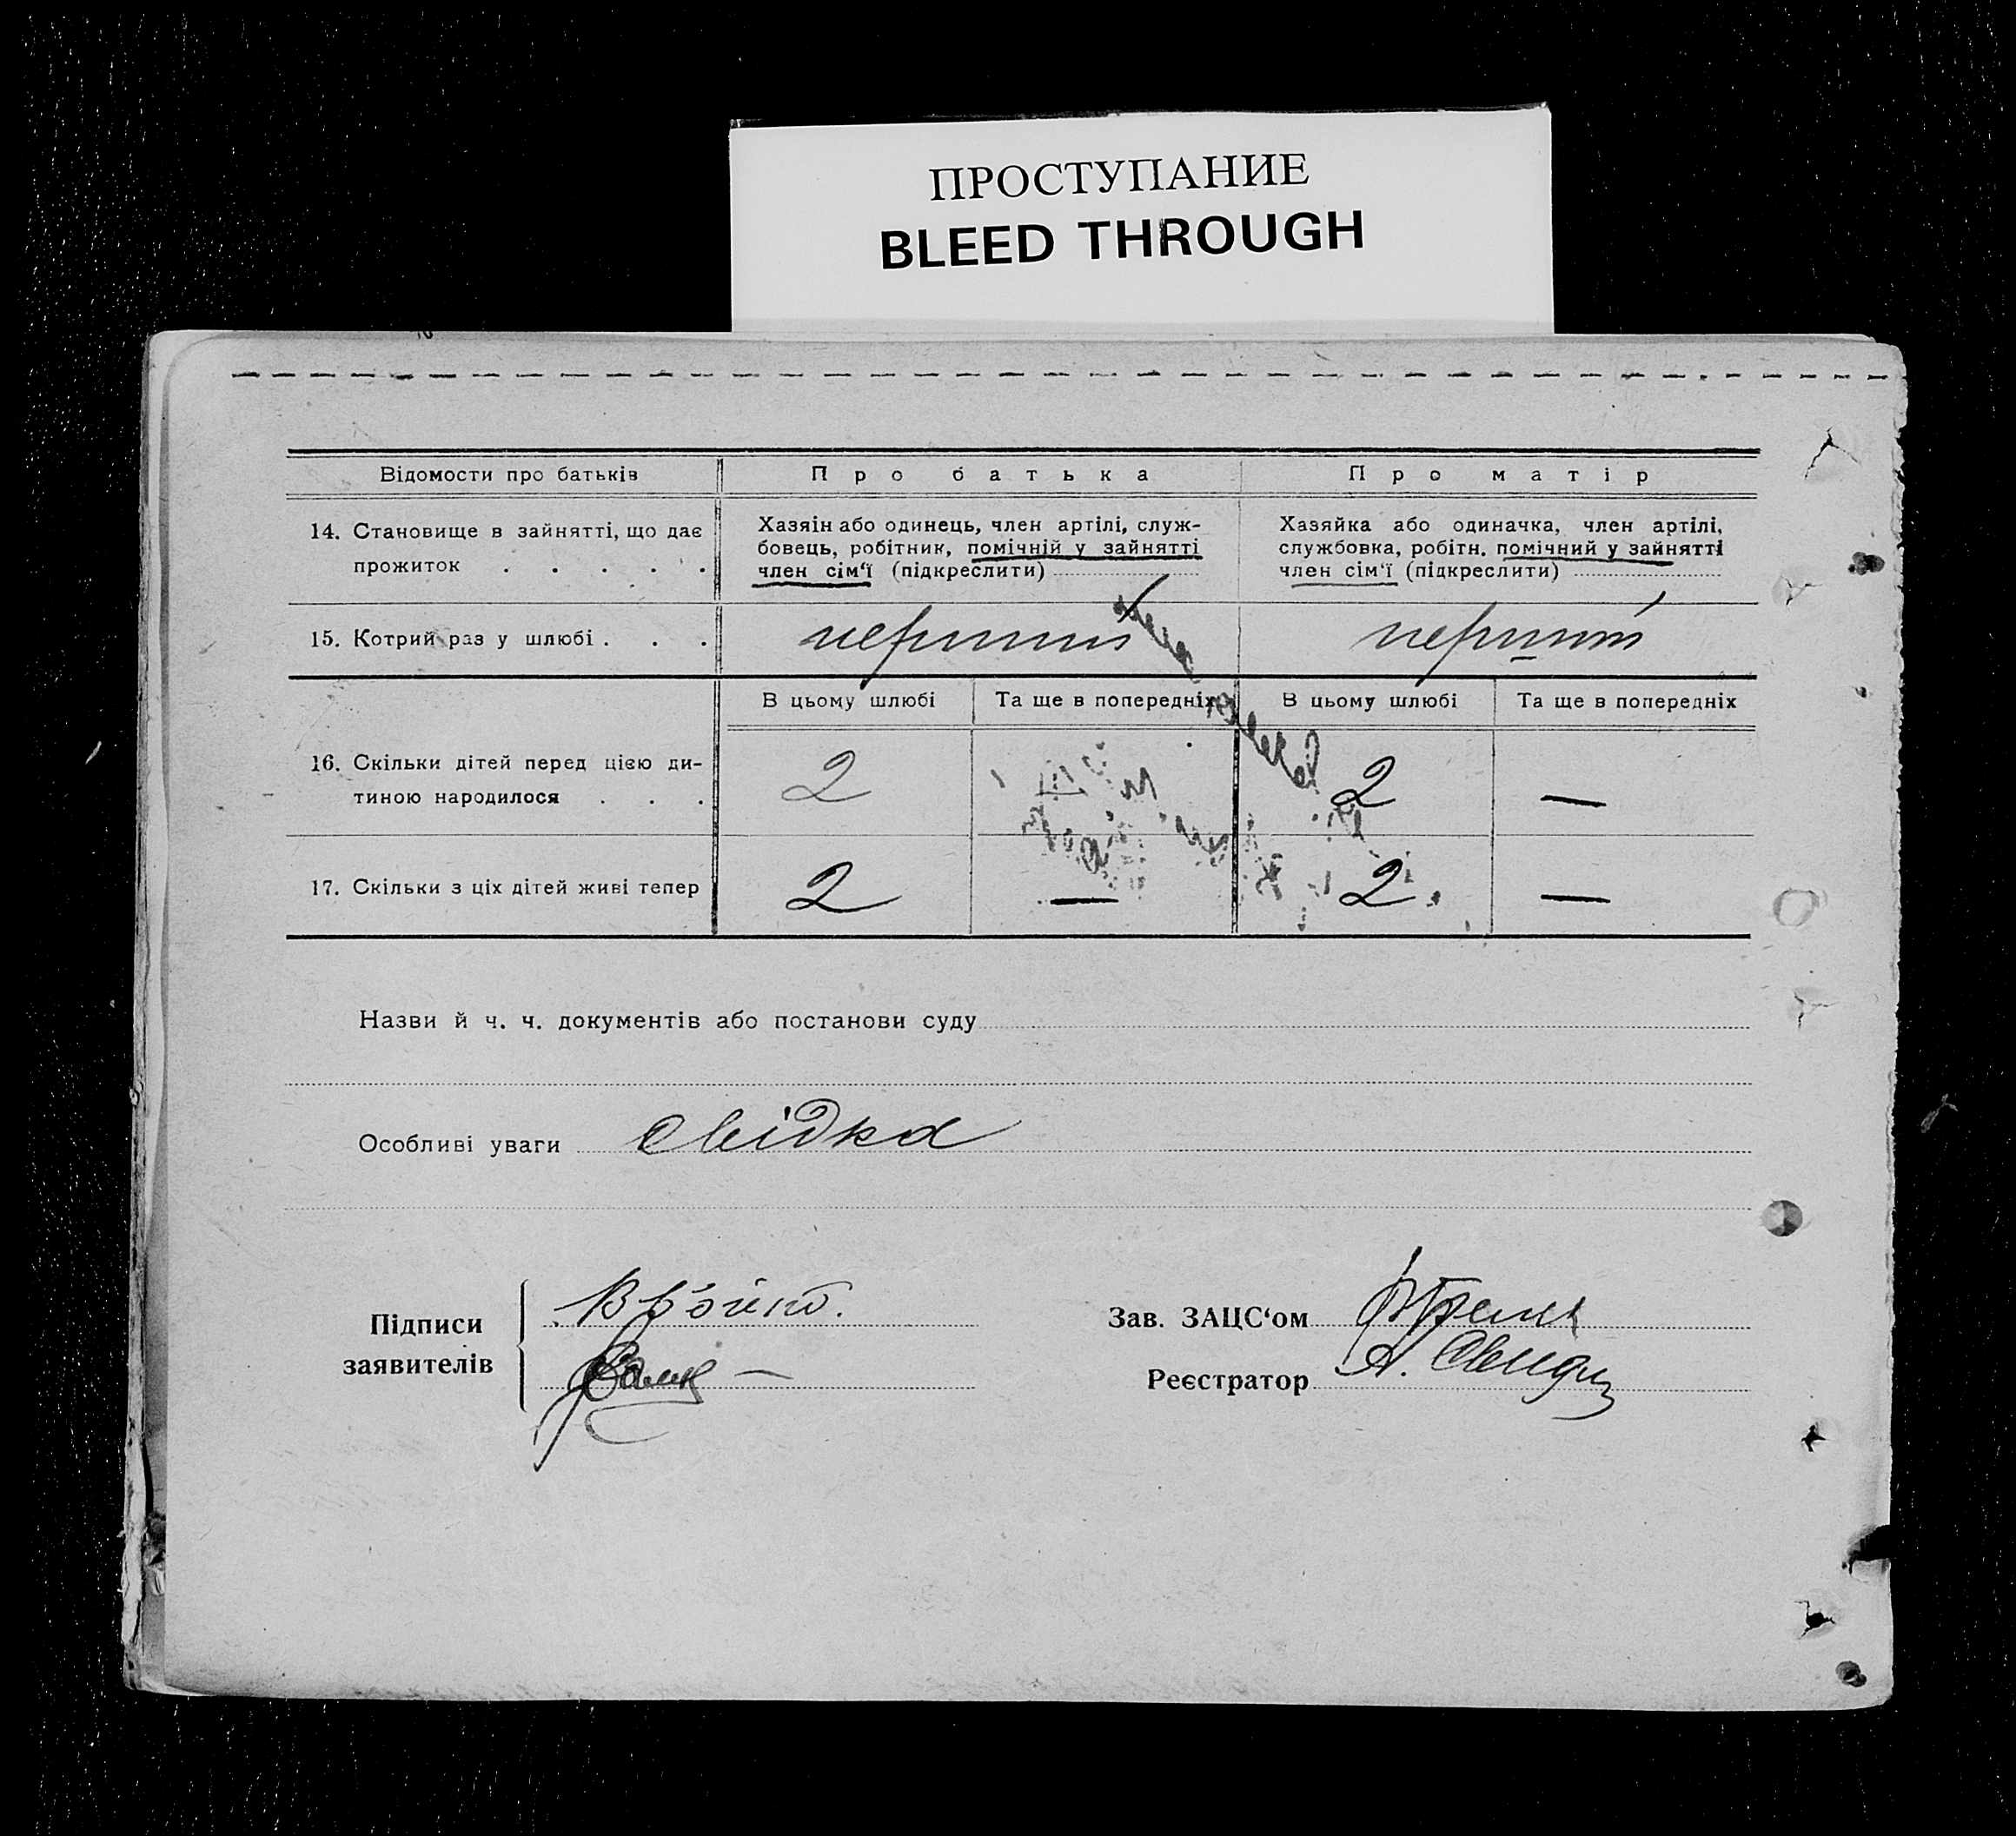 ПРОСТУПАНИЕ
BLEED THROUGH
Відомости про батьків
Про батька
Про матір
14. Становище в зайнятті, що дає
прожиток . . . . .
Хазяін або одинець, член артілі, служ-
бовець, робітник, помічній у зайнятті
член сім‘ї (підкреслити)
Хазяйка або одиначка, член артілі,
службовка, робітн. помічний у зайнятті
член сім‘ї (підкреслити)
15. Котрий раз у шлюбі . . .
перший
перший
В цьому шлюбі
Та ще в попередніх
В цьому шлюбі
Та ще в попередніх
16. Скільки дітей перед цією ди-
тиною народилося . . .
2
2
—
17. Скільки з ціх дітей живі тепер
2
—
2
—
Назви й ч. ч. документів або постанови суду
Особливі уваги свідка
Підписи
заявителів
Зав. ЗАЦС‘ом
Реєстратор А.